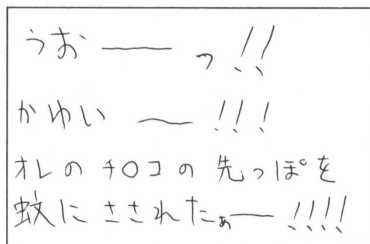 うおーーっ!!
かゆい〜!!!
オレのチ○コの先っぽを
蚊にさされたぁー!!!!